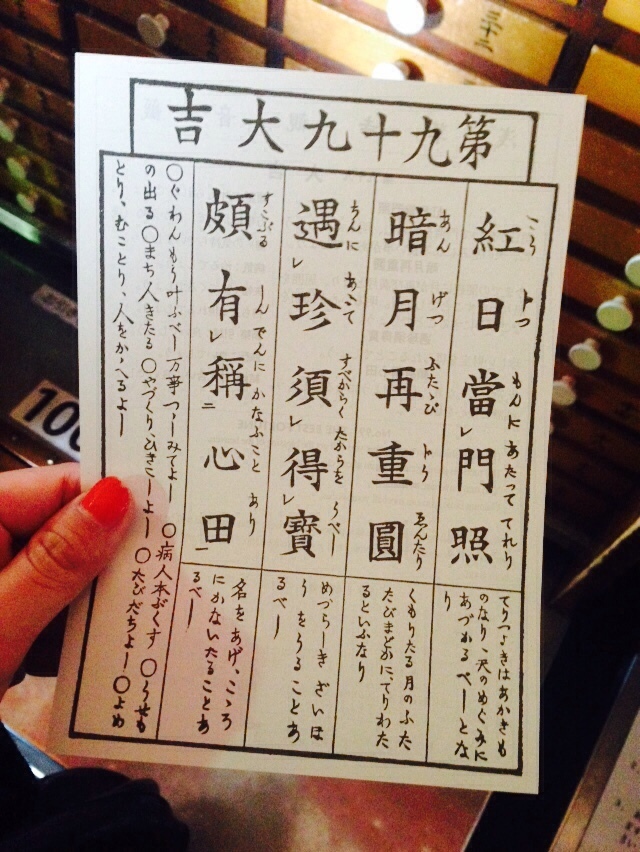 第九十九大吉
紅日當門照
もんに あたって てれり
てりつゝきはあかきも
のなり、天のめぐみに
あづかるべしとな
り
暗月再重圓
あん げつ ふたゝび ゑんたり
くもりたる月のふた
たびまどかにてりわた
るといふなり
遇珍須得寶
ちんに あふて すべからく たからを うべし
めづらしきざいほ
うをうることあ
るべし
頗有稱心田
すこぶる しんでんに かなふこと あり
名をあげ、こゝろ
にかないたることあ
るべし
○ぐわんもう叶ふべし 万事つゝしみてよし ○病人本ぷくす ○うせも
の出る ○まち人きたる ○やづくりひきこしよし ○たびだちよし ○よめ
とり、むことり、人をかゝへるよし
三十二
100